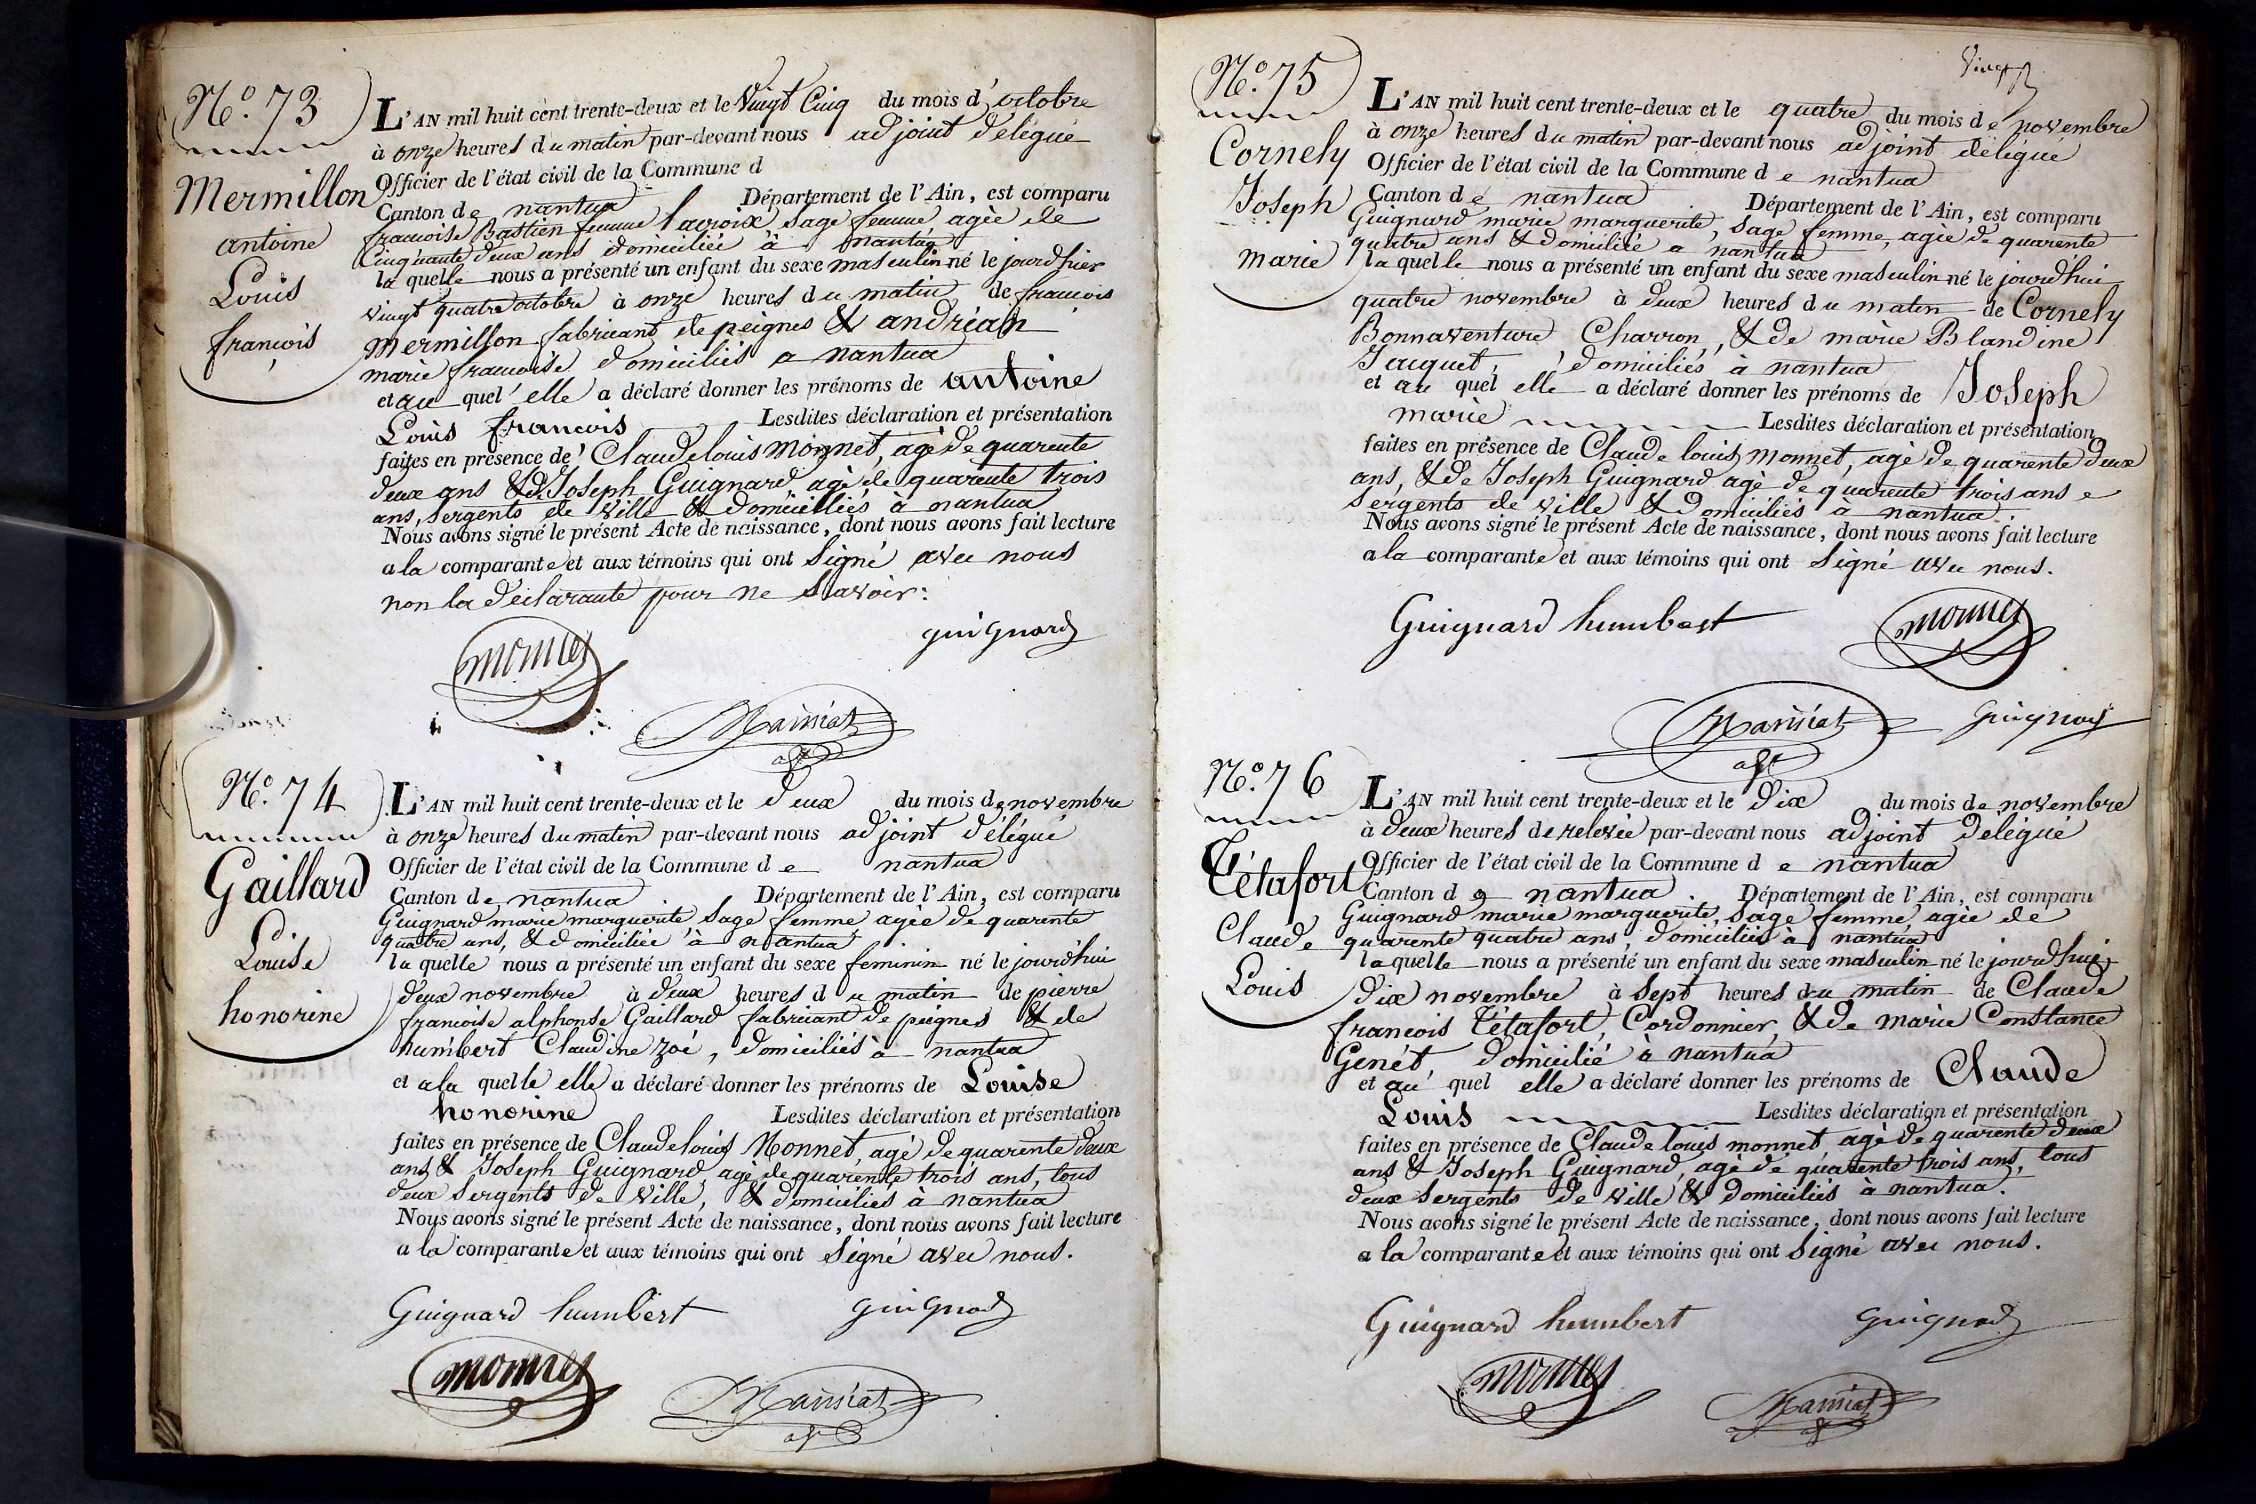 N.º 73
Mermillon
antoine
Louis
francois
L'AN mil huit cent trente-deux et le Vingt Cinq du mois d'octobre
à onze heures du matin par-devant nous adjoint délégué
Officier de l'état civil de la Commune d
Canton de nantua Département de l'Ain, est comparu
francoise Bastien femme Lacroix Sage femme agée de
Cinquante deux ans domiciliée à nantua
la quelle nous a présenté un enfant du sexe masculin né le jourd'hier
vingt quatre octobre à onze heures du matin de francois
Mermillon fabricant de peignes & andréan
marie francoise domiciliés a nantua
et au quel elle a déclaré donner les prénoms de antoine
Louis francois Lesdites déclaration et présentation
faites en présence de Claude louis Monnet, agé de quarente
deux ans & de Joseph Guignard agé de quarente trois
ans, Sergents de Ville & domicilliés à nantua
Nous avons signé le présent Acte de naissance, dont nous avons fait lecture
a la comparante et aux témoins qui ont Signé avec nous
non la déclarante pour ne Savoir:
monnet
guignard
Maissiat
adt
N.º 74
Gaillard
Louise
honorine
L'AN mil huit cent trente-deux et le deux du mois de novembre
à onze heures du matin par-devant nous adjoint délégué
Officier de l'état civil de la Commune de nantua
Canton de nantua Département de l'Ain, est comparu
Guignard marie marguerite, Sage femme, agée de quarente
quatre ans, & domiciliée à nantua
la quelle nous a présenté un enfant du sexe feminin né le jourd'hui
deux novembre à deux heures du matin de pierre
francoise alphonse Gaillard fabricant de peignes & de
humbert Claudine zoé, domiciliés à nantua
et a la quelle elle a déclaré donner les prénoms de Louise
honorine Lesdites déclaration et présentation
faites en présence de Claude louis Monnet, agé de quarente deux
ans & Joseph Guignard, agé de quarente trois ans, tous
deux Sergents de Ville, & domiciliés à nantua
Nous avons signé le présent Acte de naissance, dont nous avons fait lecture
a la comparante et aux témoins qui ont Signé avec nous.
Guignard humbert
guignard
monnet
Maissiat
adt
N.º 75
Cornely
Joseph
marie
L'AN mil huit cent trente-deux et le quatre du mois de novembre
à onze heures du matin par-devant nous adjoint délégué
Officier de l'état civil de la Commune de nantua
Canton de nantua Département de l'Ain, est comparu
Guignard marie marguerite, Sage femme, agée de quarente
quatre ans & domiciliée a nantua
la quelle nous a présenté un enfant du sexe masculin né le jourd'hui
quatre novembre à deux heures du matin de Cornely
Bonnaventure Charron, & de marie Blandine
Jacquet, domiciliés à nantua
et au quel elle a déclaré donner les prénoms de Joseph
marie Lesdites déclaration et présentation
faites en présence de Claude louis monnet, agé de quarente deux
ans, & de Joseph Guignard agé de quarente trois ans
Sergents de ville & domiciliés a nantua.
Nous avons signé le présent Acte de naissance, dont nous avons fait lecture
a la comparante et aux témoins qui ont Signé avec nous.
Guignard humbert
monnet
Maissiat
adt
guignard
N.º 76
Tétafort
Claude
Louis
L'AN mil huit cent trente-deux et le Dix du mois de novembre
à deux heures de relevée par-devant nous adjoint délégué
Officier de l'état civil de la Commune de nantua
Canton de nantua Département de l'Ain, est comparu
Guignard marie marguerite, Sage femme agée de
quarente quatre ans, domiciliée à nantua
la quelle nous a présenté un enfant du sexe masculin né le jourd'hui
Dix novembre à Sept heures du matin de Claude
francois Tétafort, Cordonnier, & de Marie Constance
Genét domicilié à nantua
et au quel elle a déclaré donner les prénoms de Claude
Louis Lesdites déclaration et présentation
faites en présence de Claude louis monnet agé de quarente deux
ans & Joseph Guignard, agé de quarente trois ans, tous
deux Sergents de ville & domiciliés à nantua.
Nous avons signé le présent Acte de naissance, dont nous avons fait lecture
a la comparante et aux témoins qui ont Signé avec nous.
Guignard humbert
guignard
monnet
Maissiat